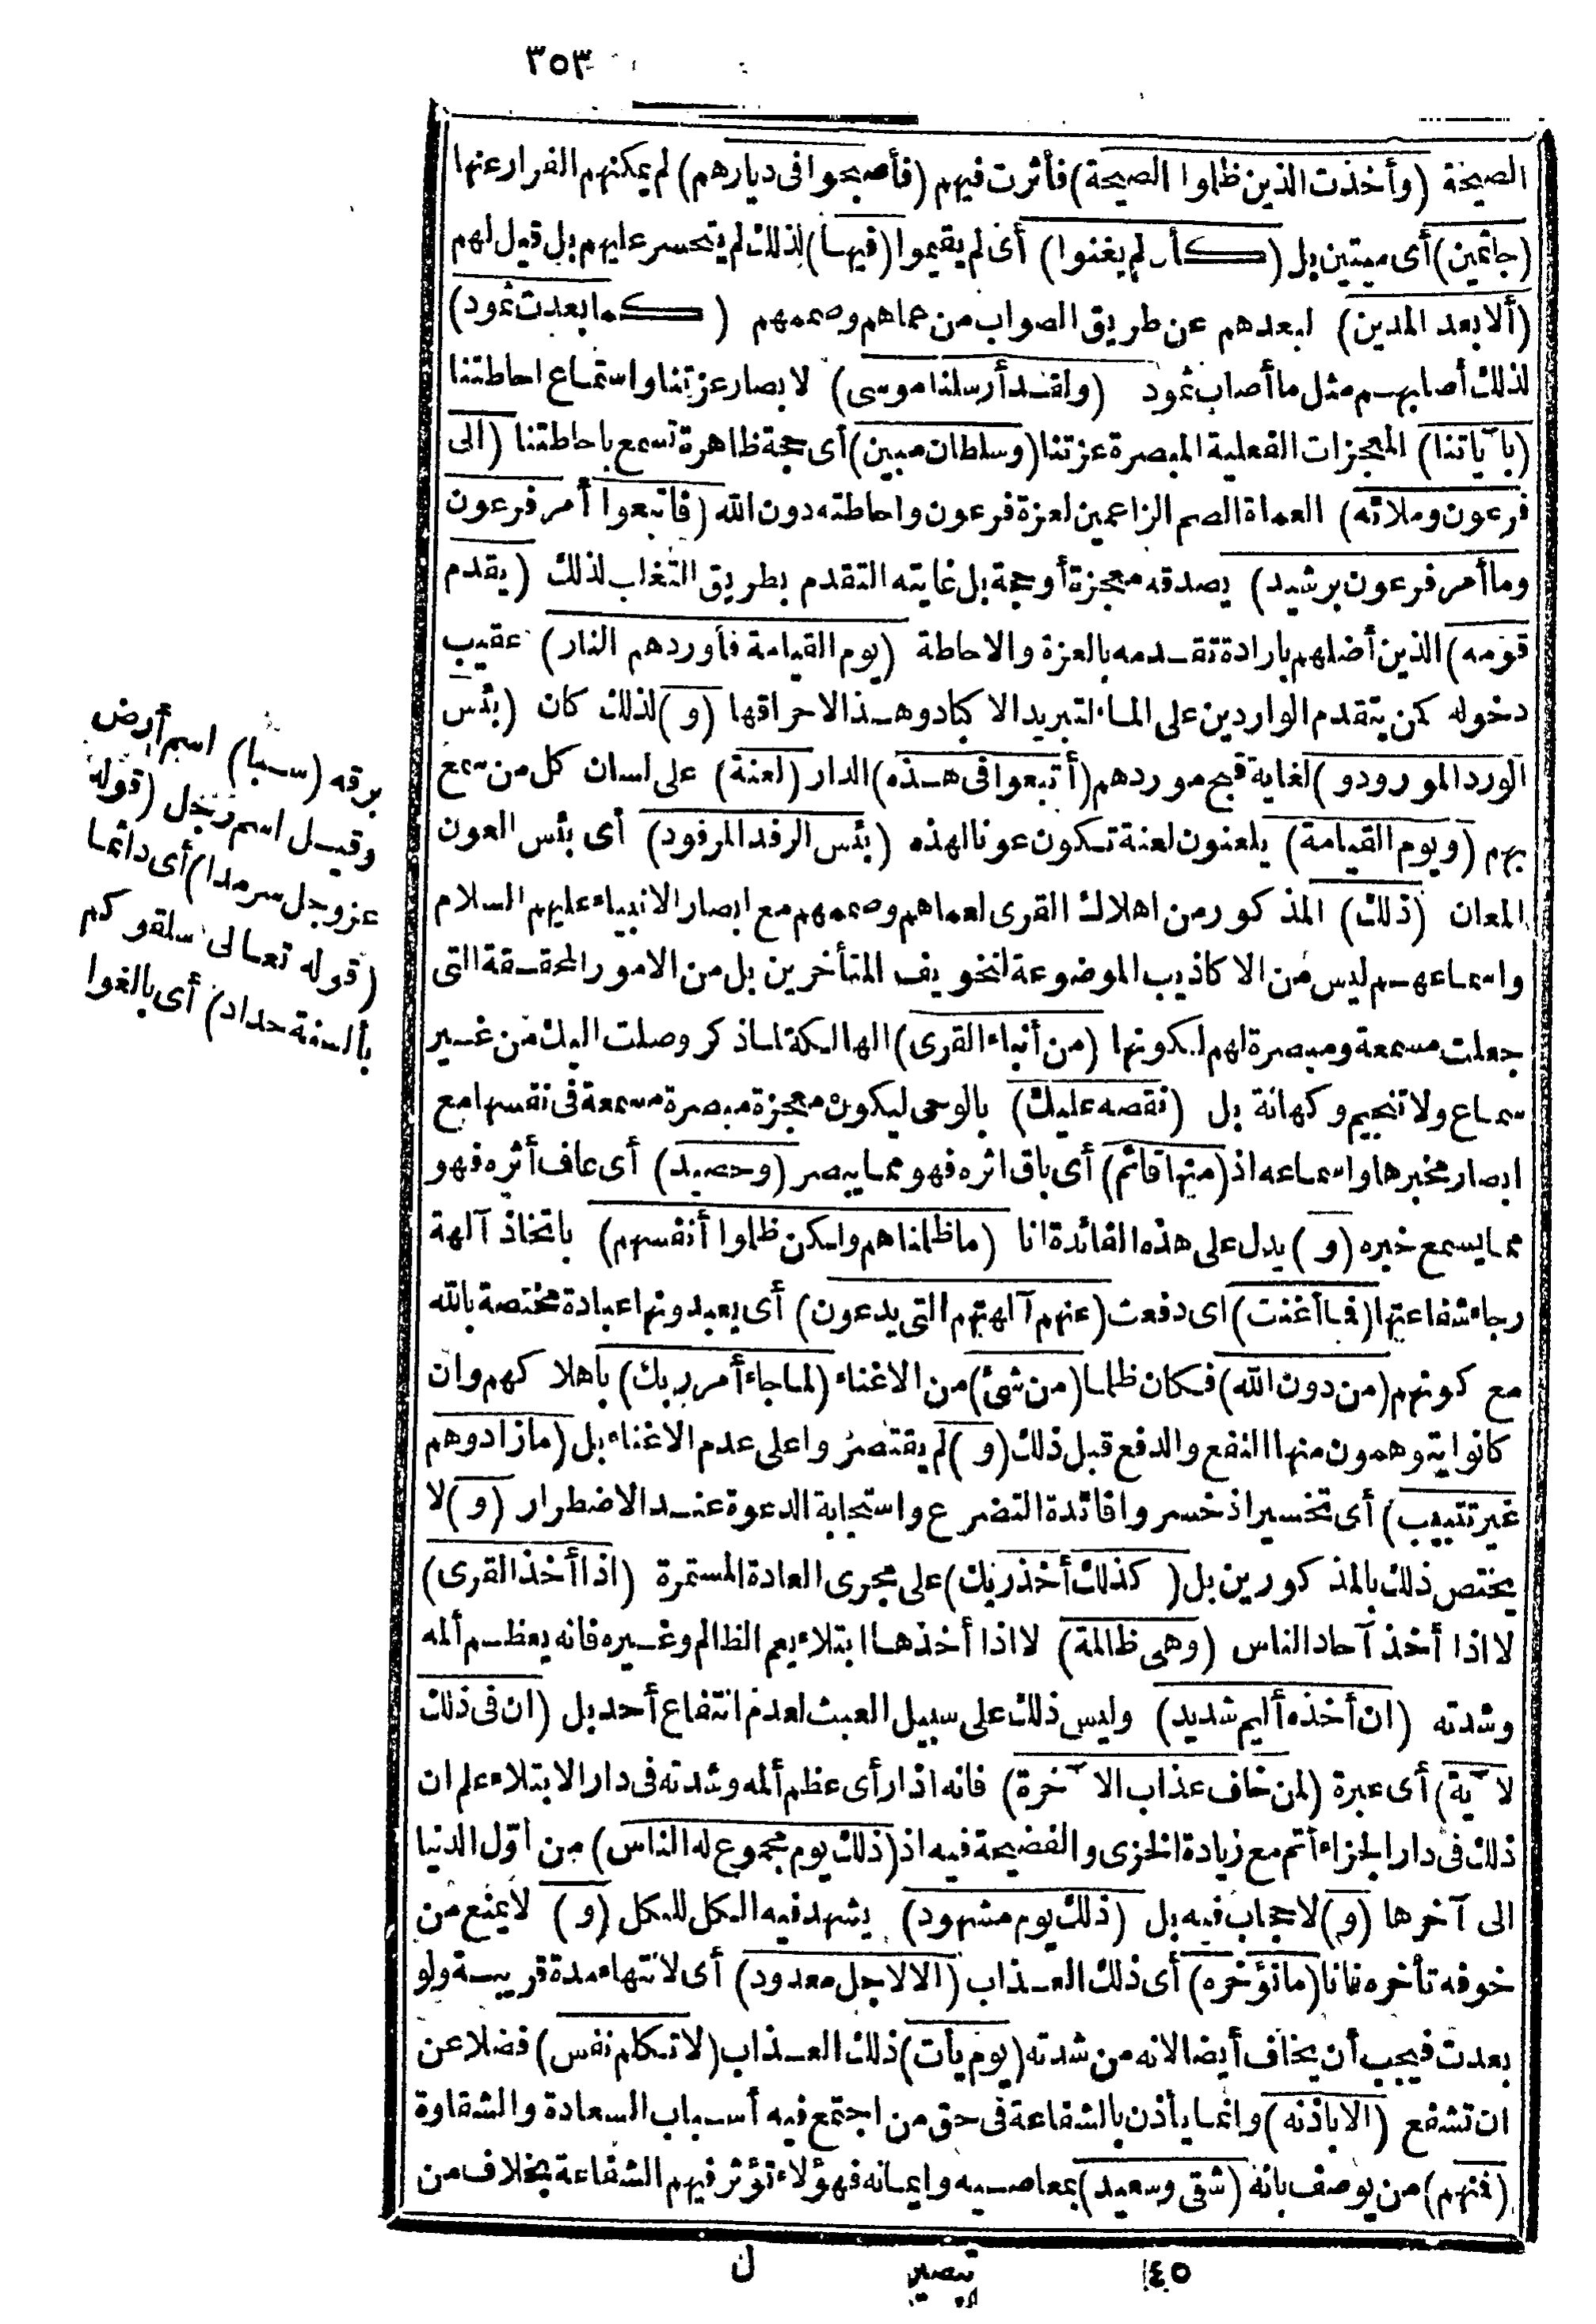 ٣٥٣
الصيحة (وأخذت الذين ظلموا الصيحة) فأثرت فيهم (فأصبحوا فى ديارهم) لم يمكنهم الفرار عنها
(جاثمين) أى ميتين بل (كأن لم يغنوا) أى لم يقيموا (فيها) لذلك لم يتحسر عليهم بل قيل لهم
(ألا بعد المدين) لبعدهم عن طريق الصواب من عماهم وصممهم (كما بعدت ثمود)
لذلك أصابهم مثل ما أصاب ثمود (ولقد أرسلنا موسى) لابصار عزتنا واستماع احاطتنا
(بآياتنا) المعجزات الفعلية المبصرة عزتنا (وسلطان مبين) أى حجة ظاهرة تسمع باحاطتنا (الى
فرعون وملائه) العماة الصم الزاعمين لعزة فرعون واحاطته دون الله (فاتبعوا أمر فرعون
وما أمر فرعون برشيد) يصدقه معجزة أو حجة بل غايته التقدم بطريق التغلب لذلك (يقدم
قومه) الذين أضلهم بارادة تقدمه بالعزة والاحاطة (يوم القيامة فأوردهم النار) عقيب
دخوله كمن يتقدم الواردين على الماء لتبريد الاكباد وهذا لاحراقها (و) لذلك كان (بئس
الورد المورود و) لغاية قبح موردهم (أتبعوا فى هذه) الدار (لعنة) على لسان كل من سمع
بهم (ويوم القيامة) يلعنون لعنة تكون عونا لهذه (بئس الرفد المرفود) أى بئس العون
المعان (ذلك) المذكور من اهلاك القرى لعماهم وصممهم مع ابصار الانبياء عليهم السلام
واسماعهم ليس من الاكاذيب الموضوعة لتخويف المتأخرين بل من الامور المحققة التى
جعلت مسمعة ومبصرة لهم لكونها (من أنباء القرى) الهالكة لما ذكر وصلت اليك من غير
سماع ولا تنجيم وكهانة بل (نقصه عليك) بالوحى ليكون معجزة مبصرة مسمعة فى نفسها مع
ابصار مخبرها واسماعه اذ (منها قائم) أى باق اثره فهو مما يبصر (وحصيد) أى عاف أثره فهو
مما يسمع خبره (و) يدل على هذه الفائدة انا (ما ظلمناهم ولكن ظلموا أنفسهم) باتخاذ آلهة
رجاء شفاعتها (فما أغنت) اى دفعت (عنهم آلهتهم التى يدعون) أى يعبدونها عبادة مختصة بالله
مع كونهم (من دون الله) فكان ظلما (من شئ) من الاغناء (لما جاء أمر ربك) باهلاكهم وان
كانوا يتوهمون منها النفع والدفع قبل ذلك (و) لم يقتصروا على عدم الاغناء بل (ما زادوهم
غير تتبيب) أى تخسير اذ خسروا فائدة التضرع واستجابة الدعوة عند الاضطرار (و) لا
يختص ذلك بالمذكورين بل (كذلك أخذ ربك) على مجرى العادة المستمرة (اذا أخذ القرى)
لا اذا أخذ آحاد الناس (وهى ظالمة) لا اذا أخذها ابتلاء يعم الظالم وغيره فانه يعظم ألمه
وشدته (ان أخذه أليم شديد) وليس ذلك على سبيل العبث لعدم انتفاع أحد بل (ان فى ذلك
لآية) أى عبرة (لمن خاف عذاب الآخرة) فانه اذا رأى عظم ألمه وشدته فى دار الابتلاء علم ان
ذلك فى دار الجزاء أتم مع زيادة الخزى والفضيحة فيه اذ (ذلك يوم مجموع له الناس) من اول الدنيا
الى آخرها (و) لا حجاب فيه بل (ذلك يوم مشهود) يشهد فيه الكل للكل (و) لا يمنع من
خوفه تأخره فانا (ما نؤخره) أى ذلك العذاب (الا لاجل معدود) أى لانتهاء مدة قريبة ولو
بعدت فيجب أن يخاف أيضا لانه من شدته (يوم يأت) ذلك العذاب (لا تكلم نفس) فضلا عن
ان تشفع (الا باذنه) وانما يأذن بالشفاعة فى حق من اجتمع فيه أسباب السعادة والشقاوة
(فمنهم) من يوصف بانه (شقى وسعيد) بمعاصيه وايمانه فهؤلاء تؤثر فيهم الشفاعة بخلاف من
برقه (سبا) اسم أرض
وقيل اسم رجل (قوله
عز وجل سرمدا) أى دائما
(قوله تعالى سلقوكم
بألسنة حداد) أى بالغوا
٤٥ تبصير ل